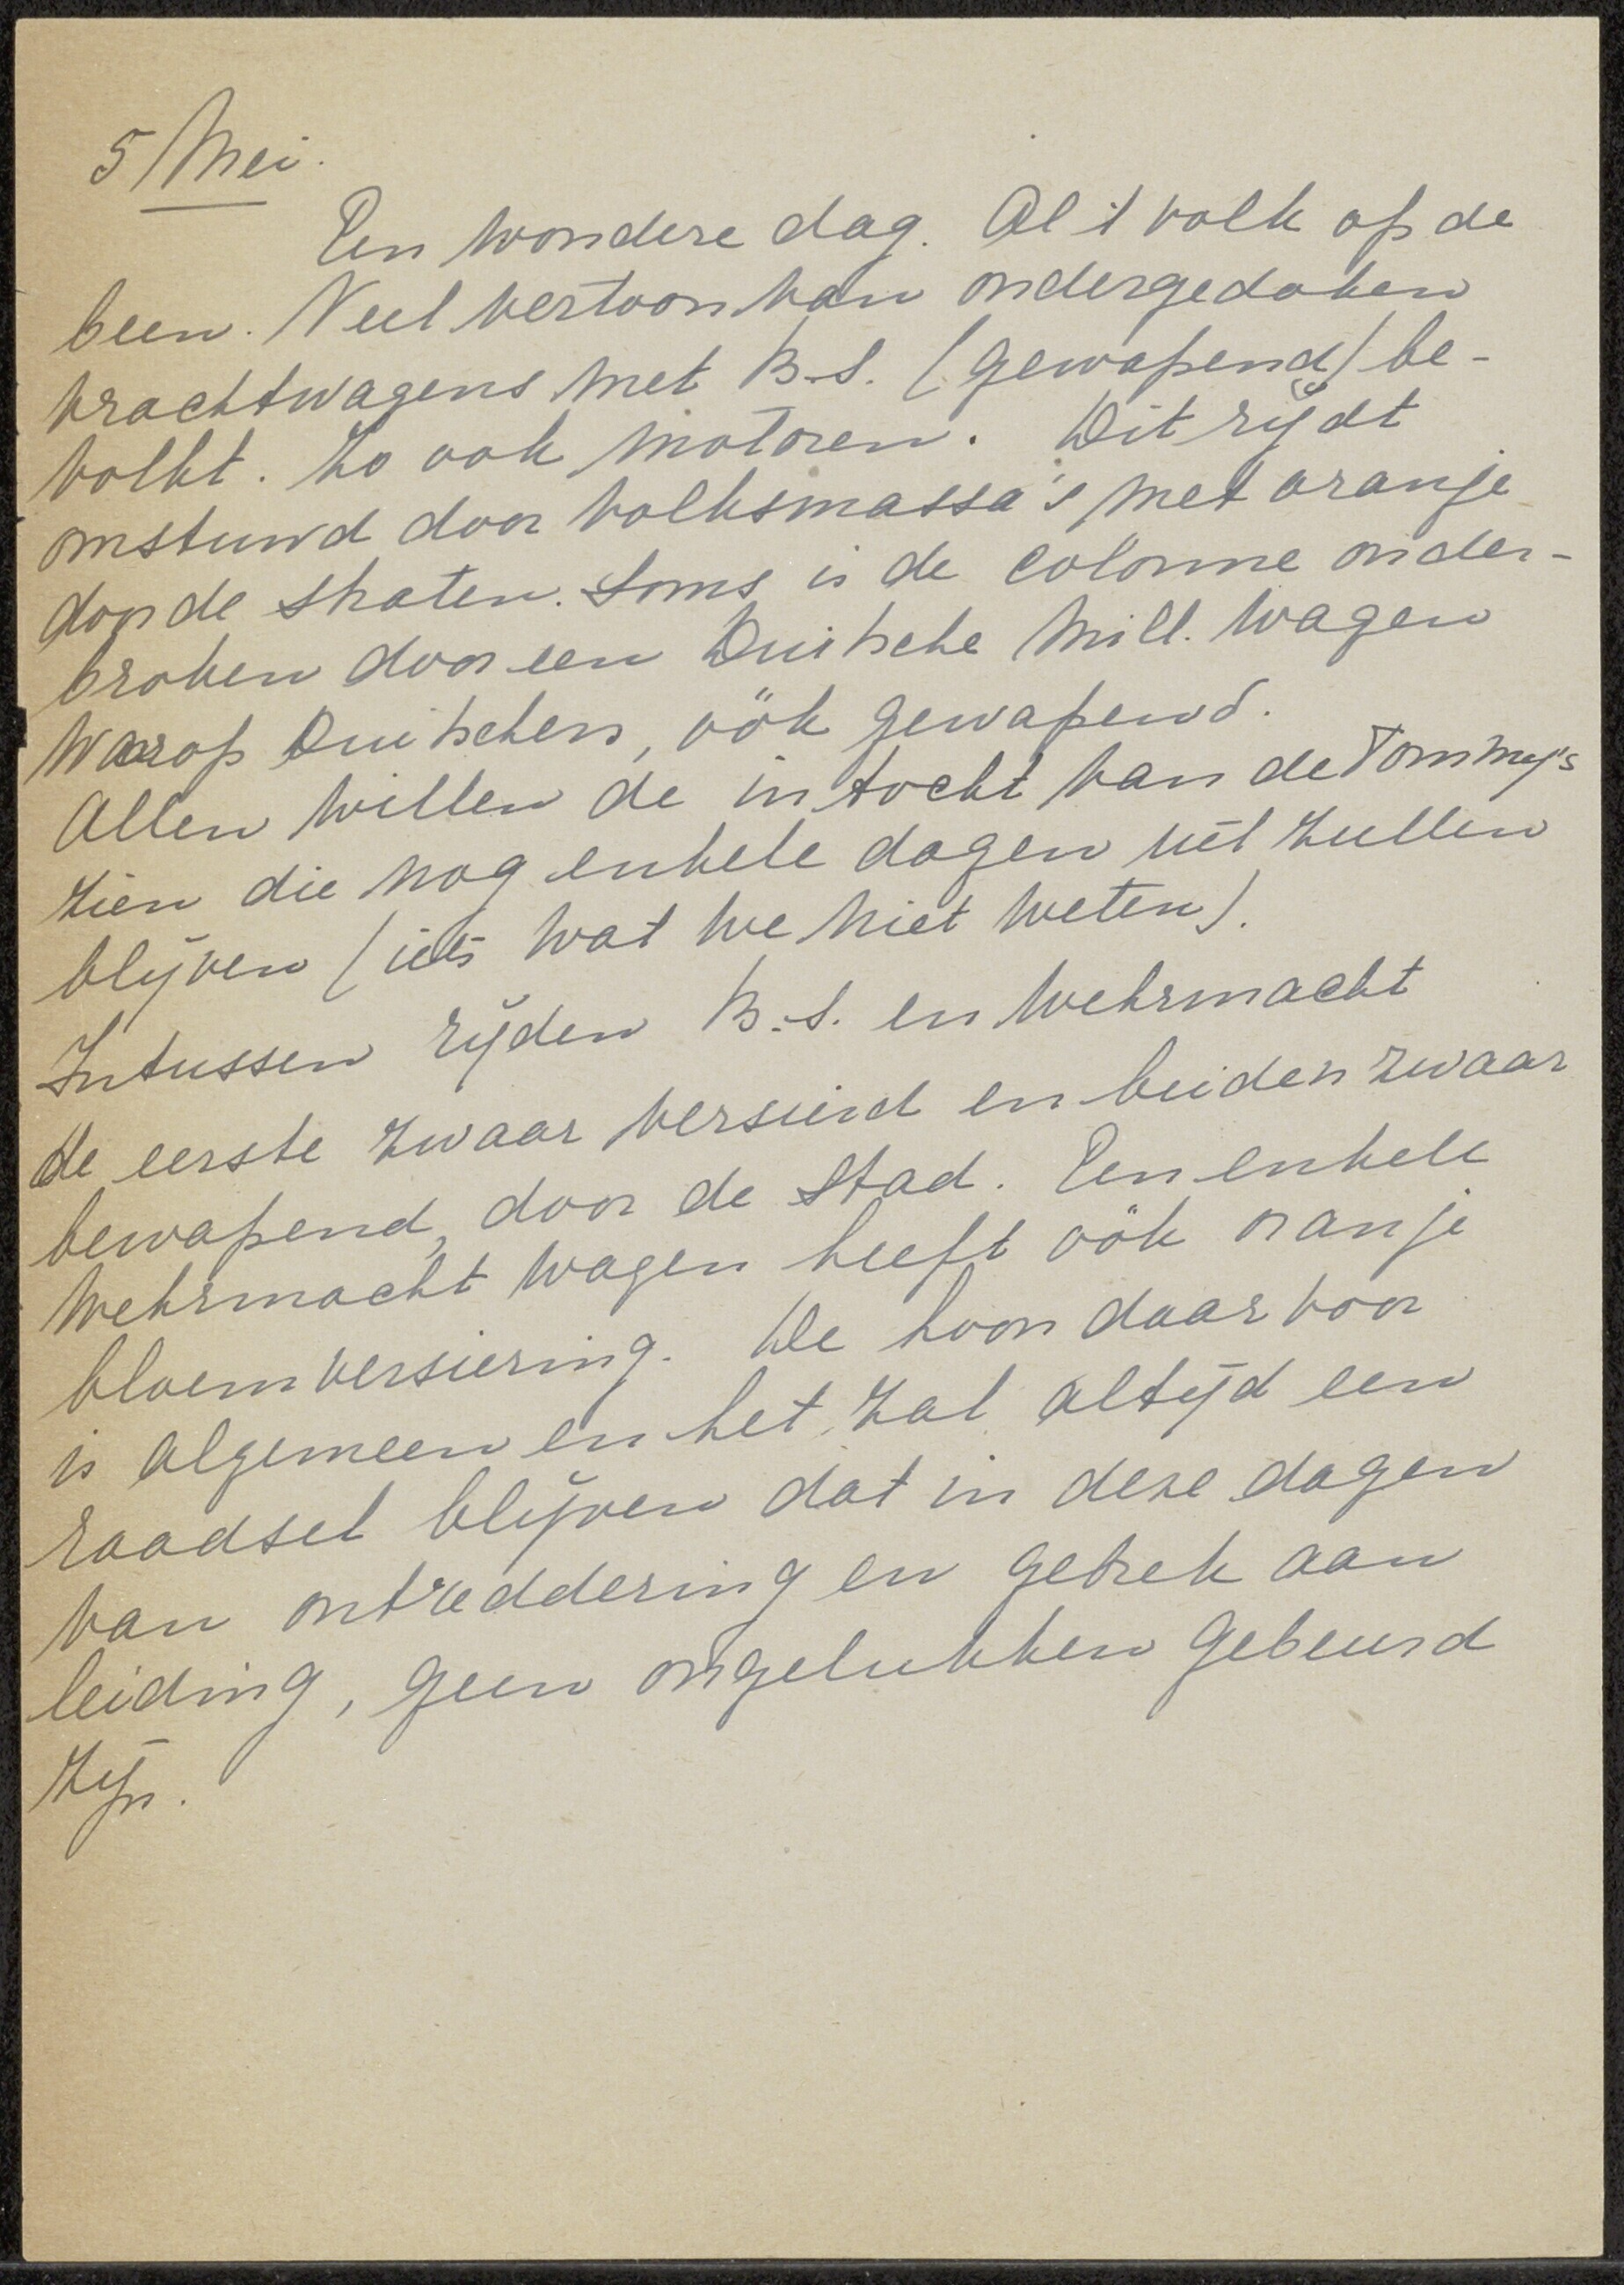 5 Mei.
Een wondere dag. Al 't volk op de
been. Veel vertoon van ondergedoken
vrachtwagens met B.S. (gewapend) be-
volkt. Zo ook motoren. Dit rijdt
omstuwd door volksmassa's met oranje
door de straten. Soms is de colonne onder-
broken door een Duitsche mill. wagen
waarop Duitschers, oök gewapend.
Allen willen de intocht van de Tommy's
zien die nog enkele dagen uit zullen
blijven (iets wat we niet weten).
Intussen rijden B.S. en Wehrmacht
de eerste zwaar versierd en beiden zwaar
bewapend, door de stad. Een enkele
Wehrmacht wagen heeft oök oranje
bloemversiering. De hoon daarvoor
is algemeen en het zal altijd een
raadsel blijven dat in deze dagen
van ontreddering en gebrek aan
leiding, geen ongelukken gebeurd
zijn.